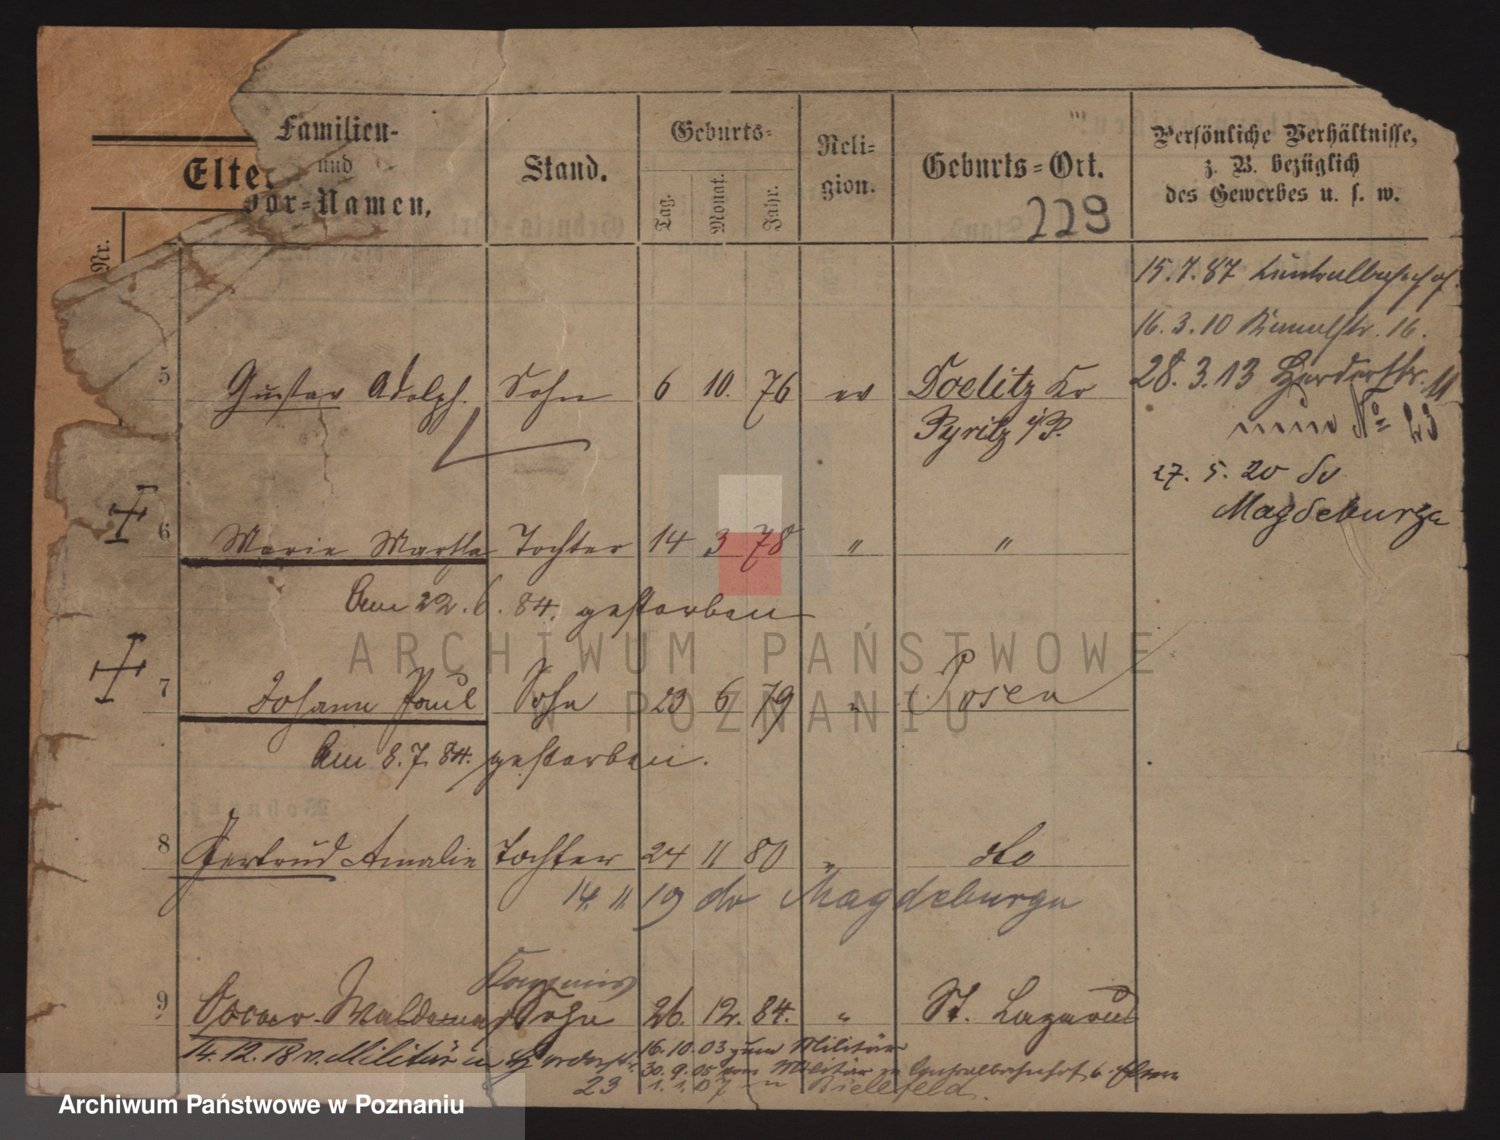 Familien-
und
Vor-Namen.
Elte
Nr.
Stand.
Geburts-
Tag.
Monat.
Jahr.
Reli-
gion.
Geburts-Ort.
229
Persönliche Verhältnisse,
z. B. bezüglich
des Gewerbes u. s. w.
15.7.87 Centralbahnhof.
16.3.10 16.
5 Gustav Adolph. Sohn 6 10. 76 ev Doelitz Kr
Pyritz i/P.
28.3.13 Herderstr. 11
nun No 23
27. 5. 20 do
Magdeburg
6 Marie Martha Tochter 14 3 78 " "
Am 22. 6. 84. gestorben
7 Johann Paul Sohn 23 6 79 " Posen
Am 8.7.84. gestorben.
8 Gertrud Amalie Tochter 24 11 80 " dto
14. 11 19 do Magdeburg
9 Oscar Waldemar Sohn 26. 12. 84. " St. Lazarus
14.12.18 v. Militär n Herderstr.
23
16.10.03 zum Militär
30.9.05 vom Militär n Centralbahnhof 6 Eltern
1.1.07 n Bielefeld.
ARCHIWUM PAŃSTWOWE
W POZNANIU
Archiwum Państwowe w Poznaniu